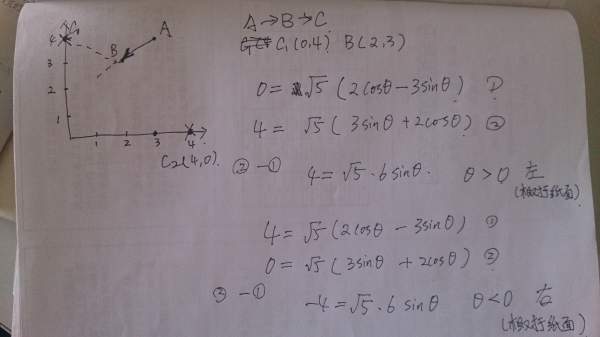 A→B→C
C₁(0,4) B(2,3)
4 C₁
A
B
3
2
1
1 2 3 4
C₂(4,0)
0=√5(2cosθ-3sinθ) ①
4=√5(3sinθ+2cosθ) ②
②-① 4=√5·6sinθ. θ>0 左
(相对于纸面)
4=√5(2cosθ-3sinθ) ①
0=√5(3sinθ+2cosθ) ②
②-① -4=√5·6sinθ θ<0 右
(相对于纸面)